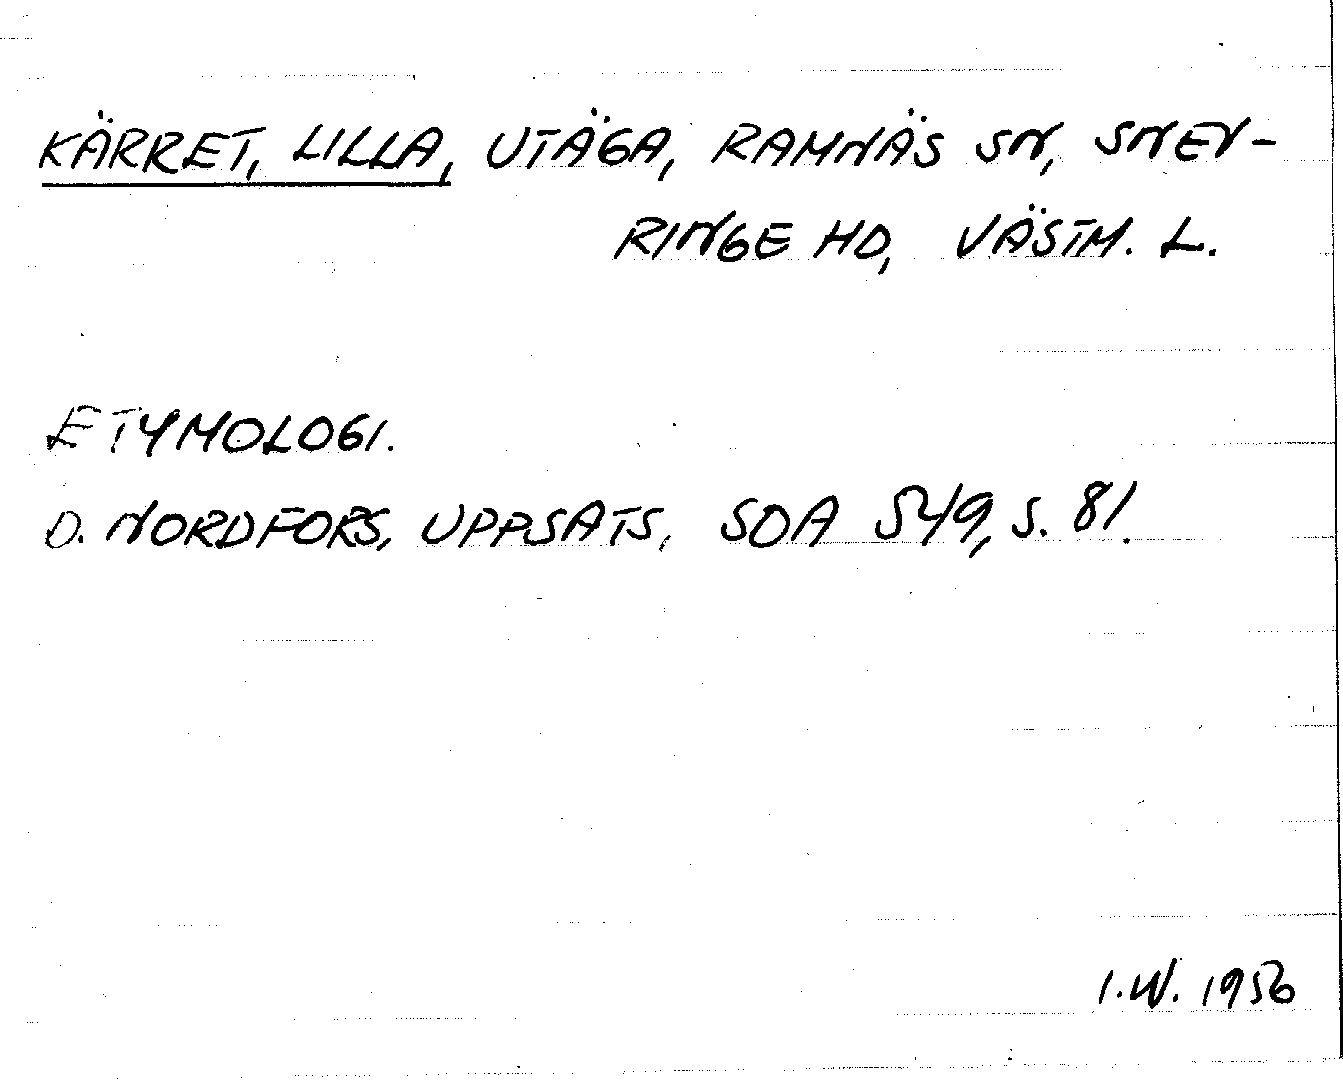 KÄRRET, LILLA, UTÄGA, RAMNÄS SN, SNEV-
RINGE HD, VÄSTM. L.
ETYMOLOGI.
D. NORDFORS, UPPSATS, SOA 549, S. 81.
I.W. 1956